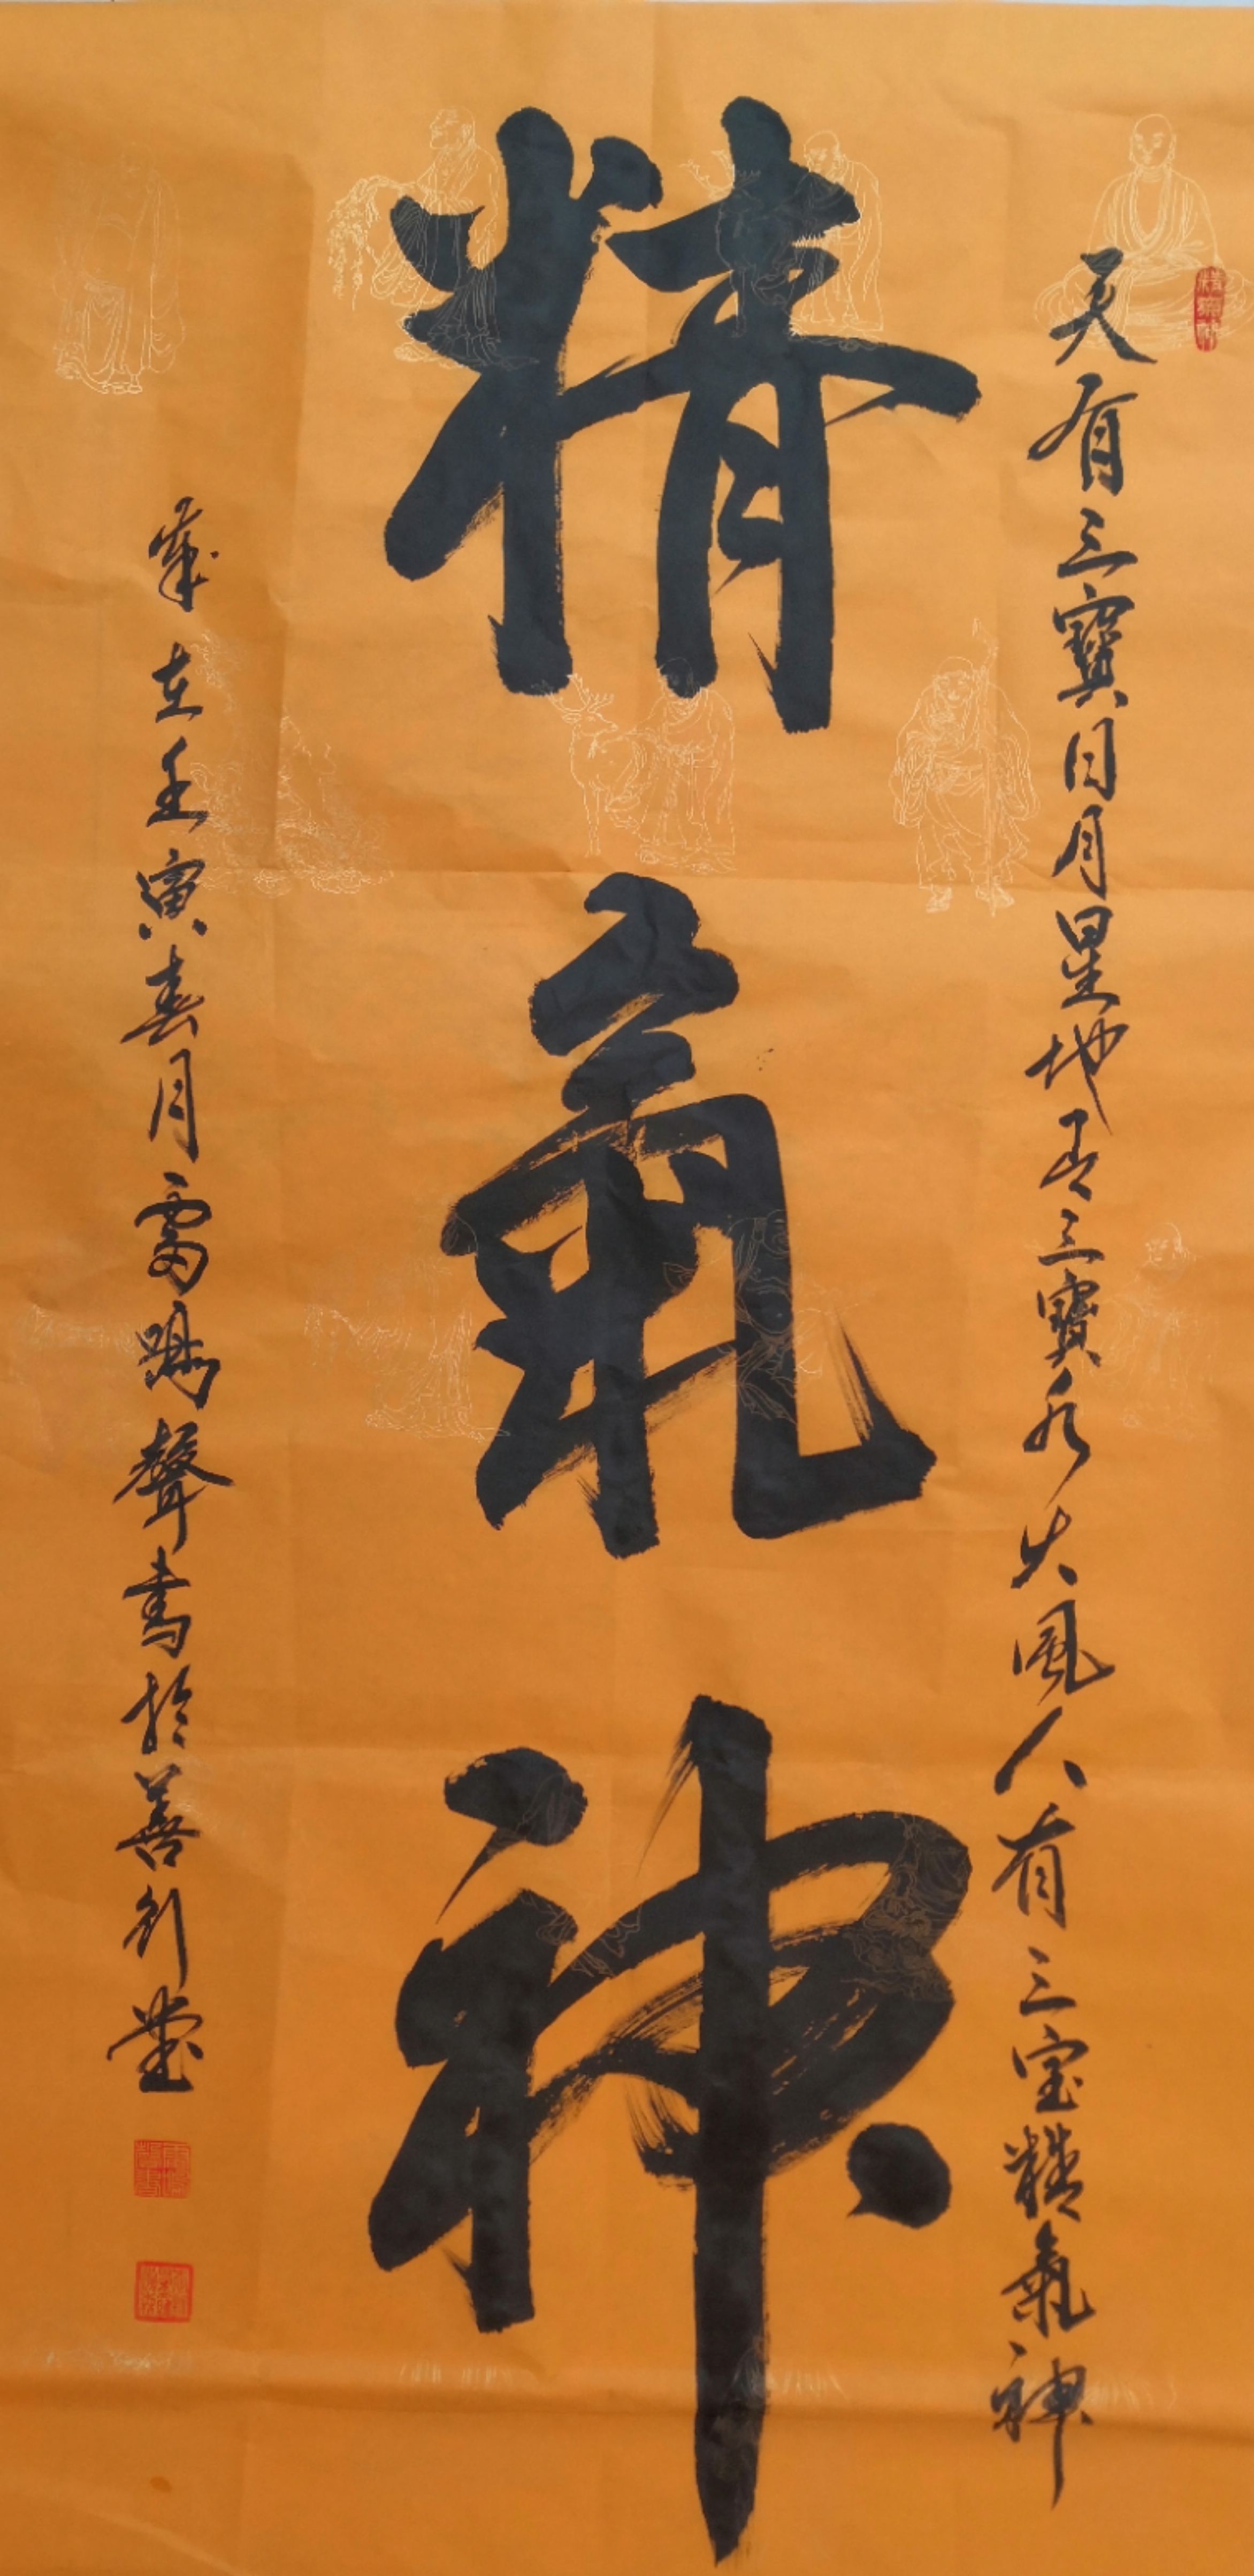 天有三寶日月星地有三寶水火風人有三宝精氣神
精氣神
歲在壬寅春月雷鳴聲書於善利堂
精氣神